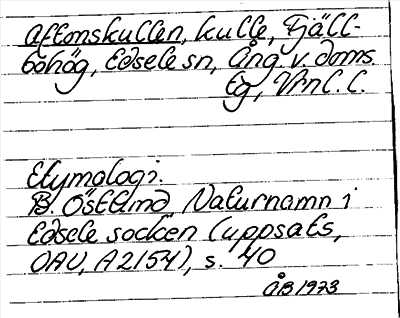 Aftonskullen, kulle, Fjäll-
bohög, Edsele sn, Ång. v. doms.
tg, Vrnl. L.
Etymologi.
B. Östlind Naturnamn i
Edsele socken (uppsats,
OAU, A2154), s. 40
ÅB 1973